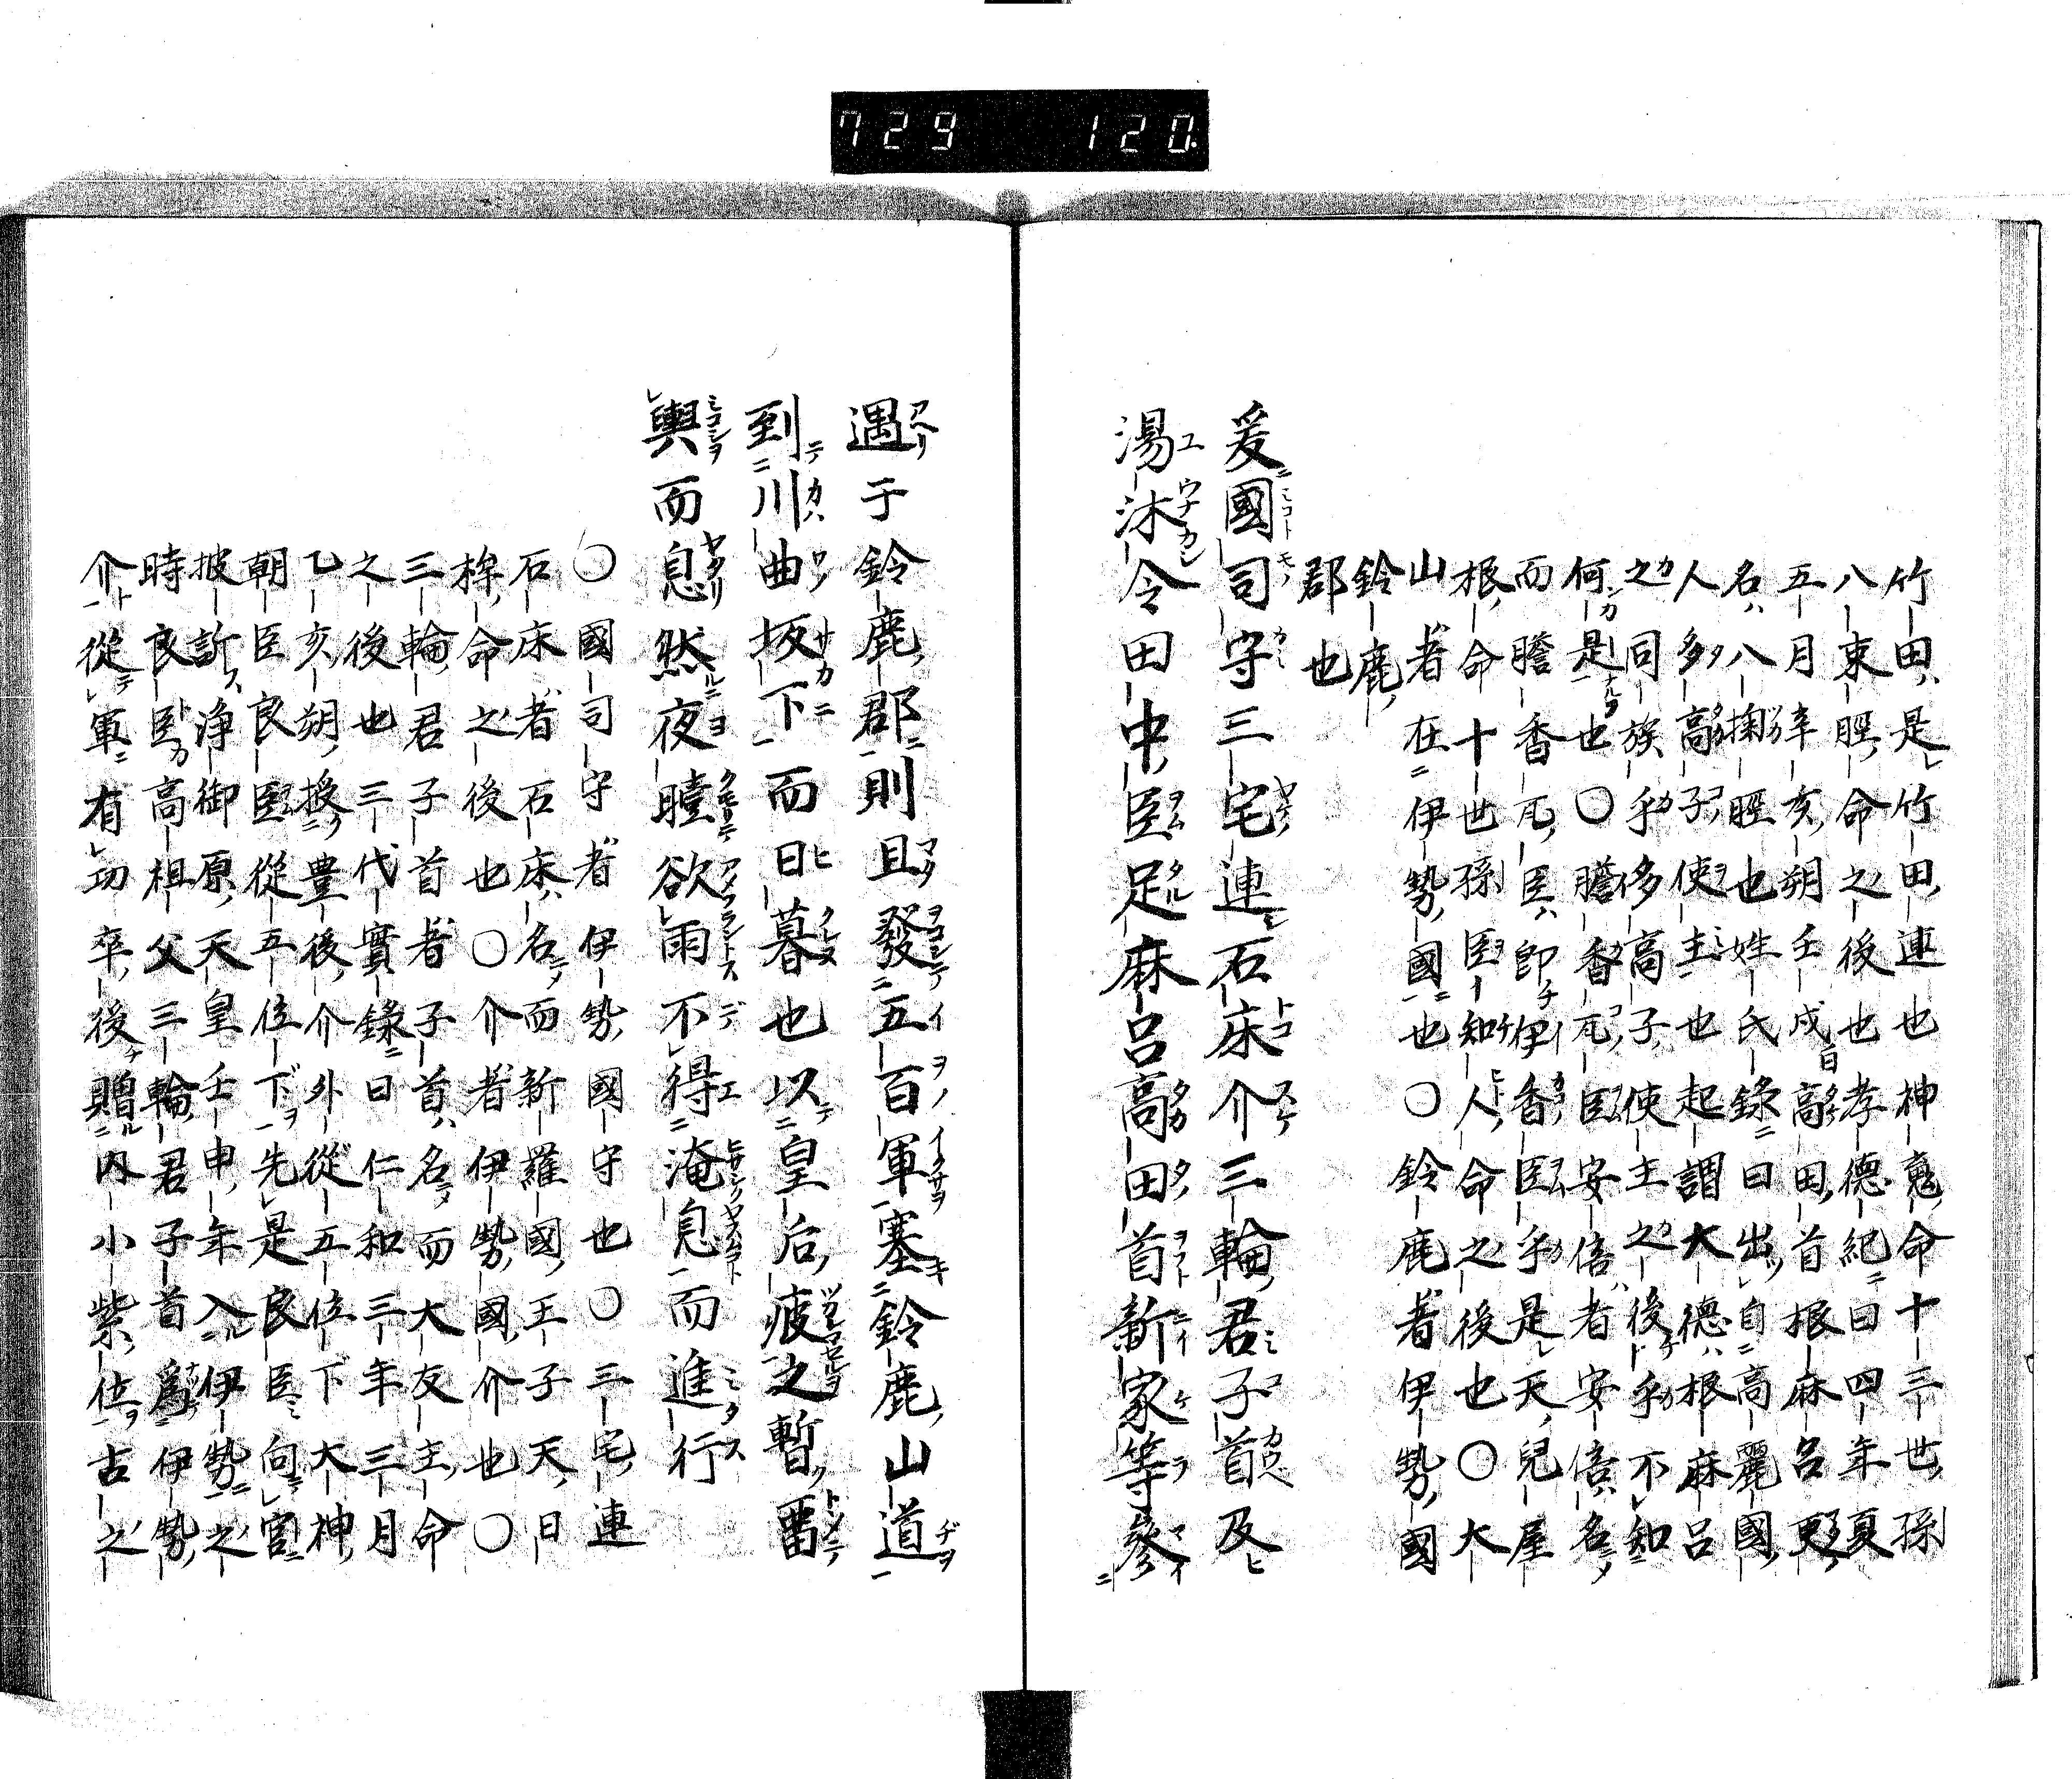 729 120
竹田是竹田連也神䰟命十三世孫
八束脛命之後也孝德紀曰四年夏
五月辛亥朔壬戌白高田首根麻呂更
名八掬脛也姓氏錄曰出自高麗國
人多高子使主也起謂大德根麻呂
之同族乎侈高子使主之後乎不知
何是也〇膽香瓦臣安倍者安倍名
而膽香瓦臣即伊香臣乎是天兒屋
根命十世孫臣知人命之後也〇大
山者在伊勢國也〇鈴鹿者伊勢國
鈴鹿
郡也
爰國司守三宅連石床介三輪君子首及
湯沐令田中臣足麻呂高田首新家等參
遇于鈴鹿郡則且發五百軍塞鈴鹿山道
到川曲坂下而日暮也以皇后疲之暫留
輿而息然夜曀欲雨不得淹息而進行
〇國司守者伊勢國守也〇三宅連
石床者石床名而新羅國王子天日
桙命之後也〇介者伊勢國介也〇
三輪君子首者子首名而大友主命
之後也三代實錄曰仁和三年三月
乙亥朔授豊後介外從五位下大神
朝臣良臣從五位下先是良臣向官
披訴淨御原天皇壬申年入伊勢之
時良臣高祖父三輪君子首爲伊勢
介從軍有功卒後贈內小紫位古之